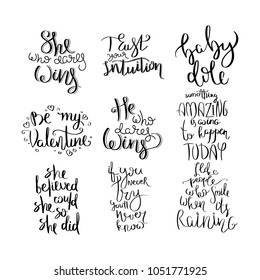 She
who dares
Wins
Trust
your
intuition
baby
dole
Be my
Valentine
He
who dares
Wins
something
AMAZING
is going
to happen
TODAY
she
believed
she could
so
she did
if you
never
try
you'll
never
know
I like
people
who smile
when it's
Raining
shutterstock
IMAGE ID: 1051771925
www.shutterstock.com